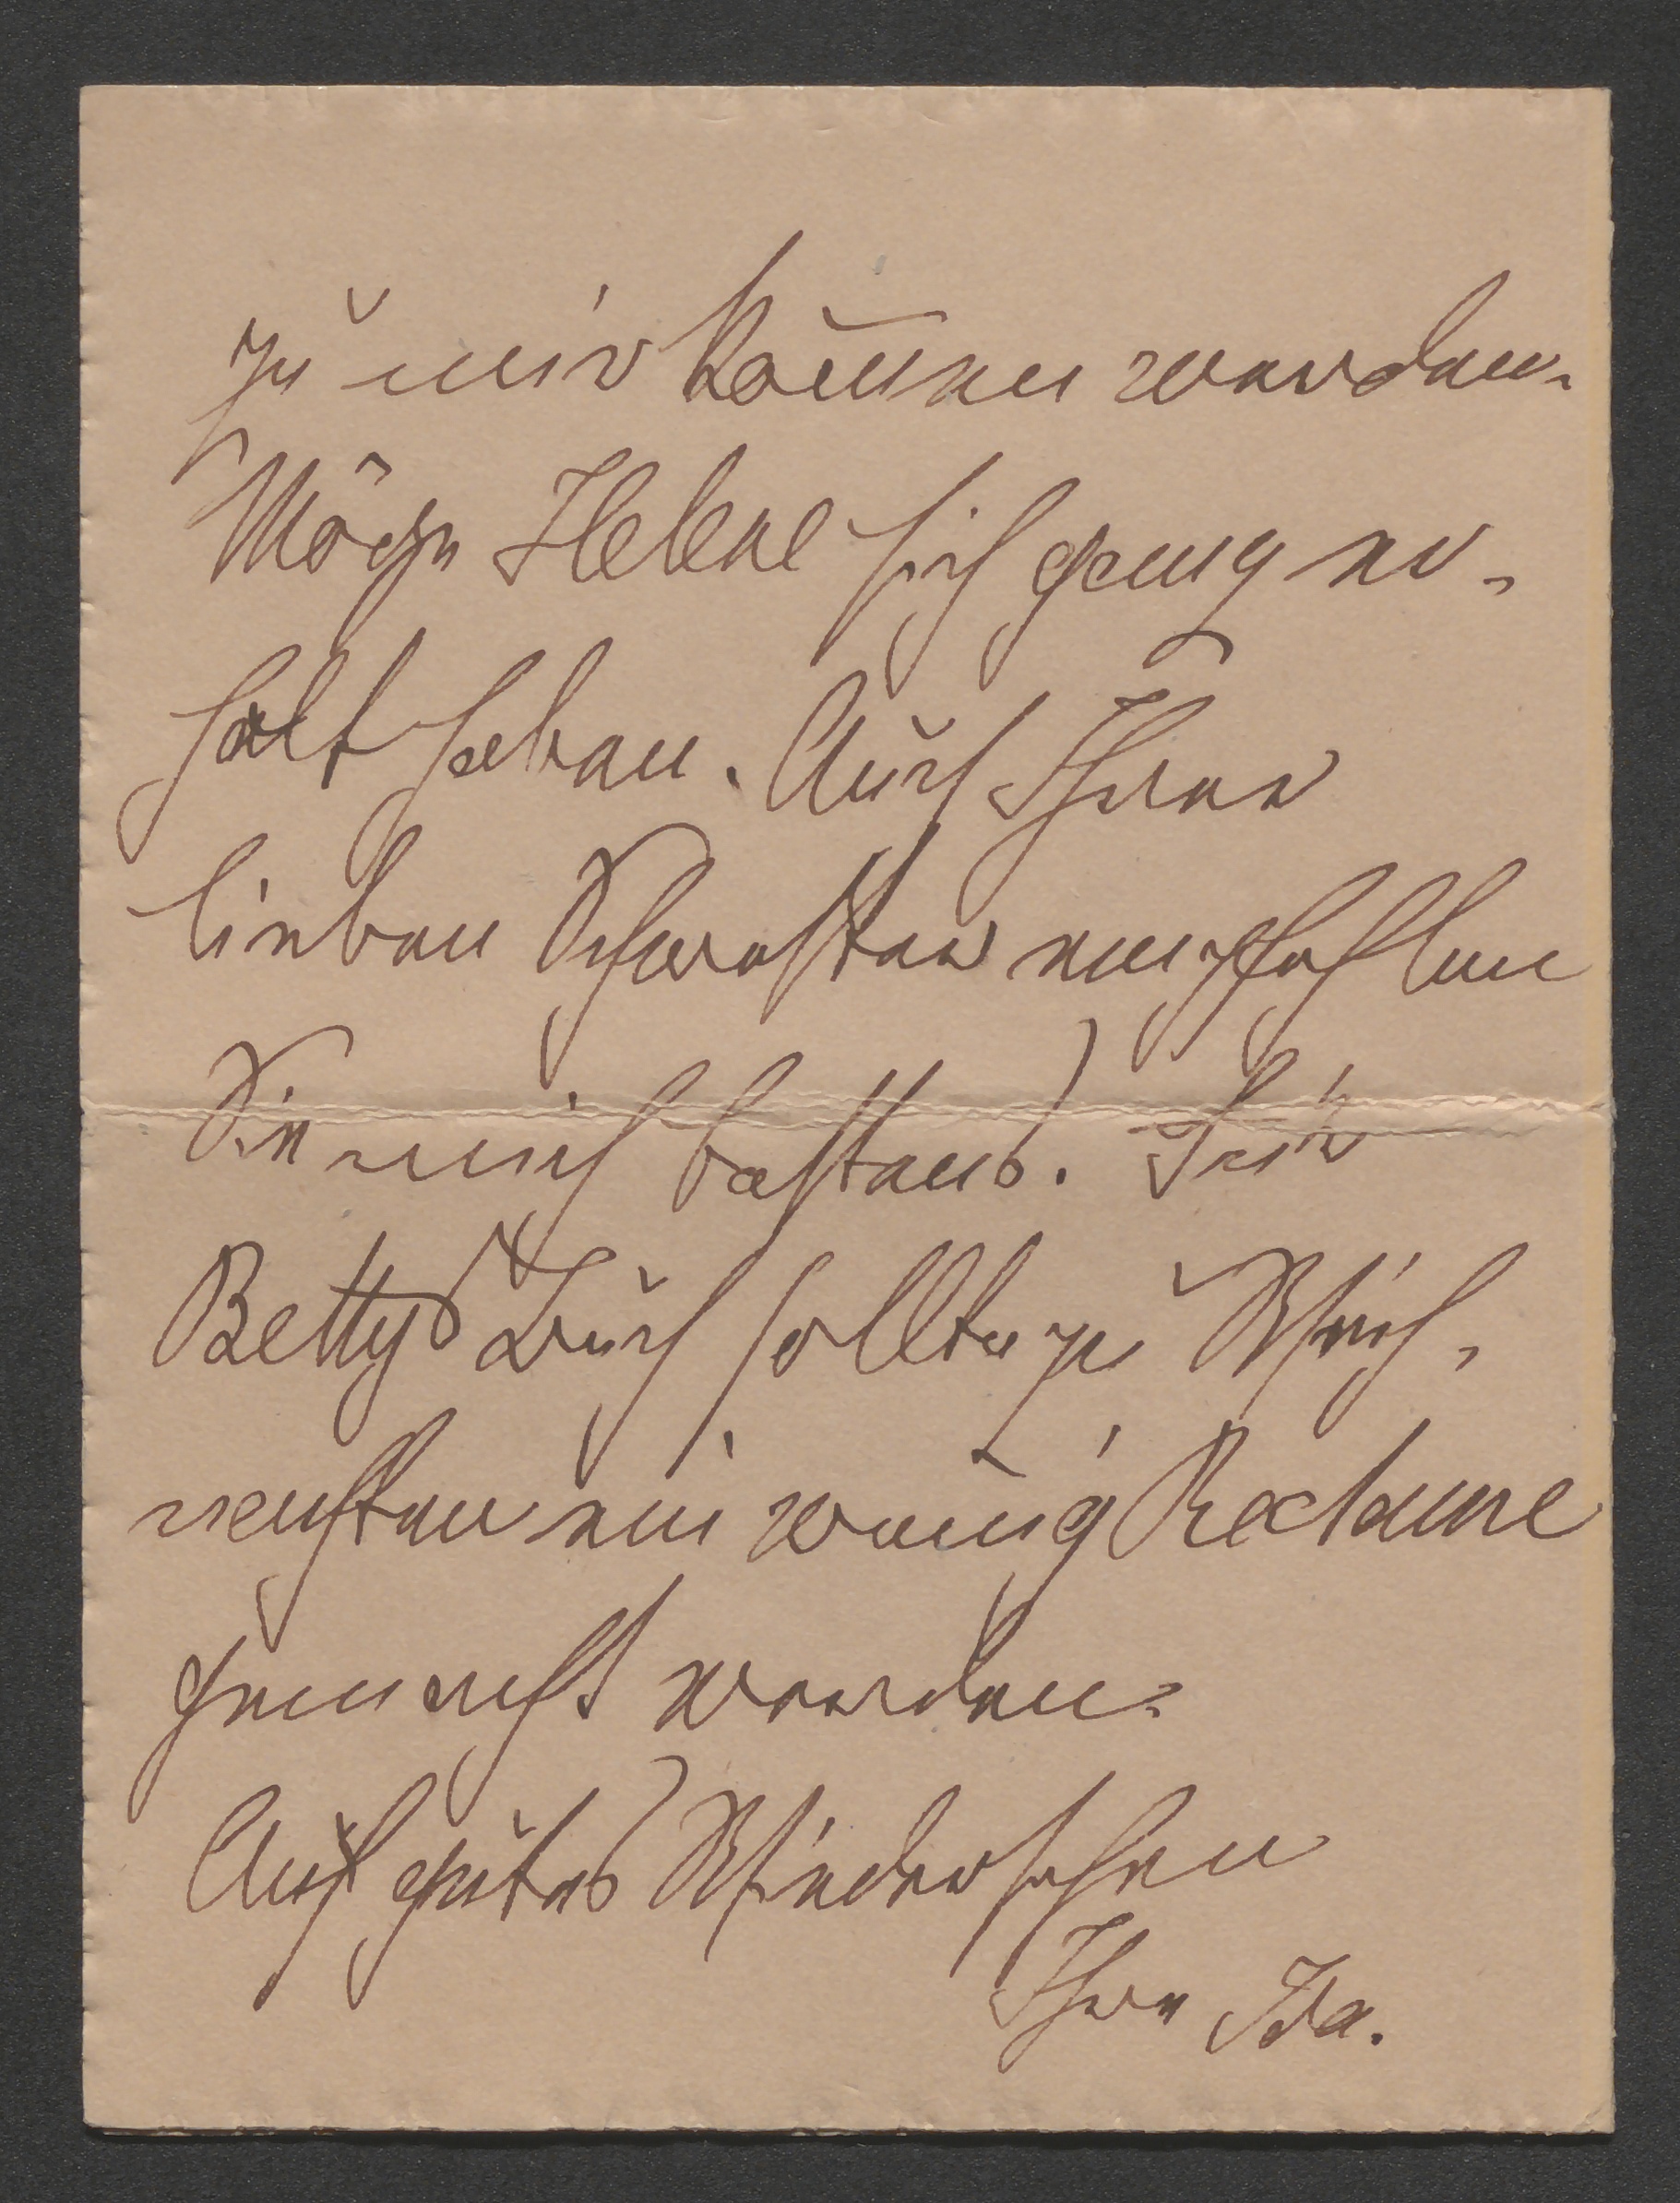 zu mir kom̅en werden.
Möge Helene sich genug er-
holt haben. Auch Ihrer
lieben Schwester empfehlen
Sie mich bestens. Für
Bettys Buch sollte zu Weih-
nachten ein wenig Reclame
gemacht werden.
Auf gutes Wiedersehen
Ihre Ida.